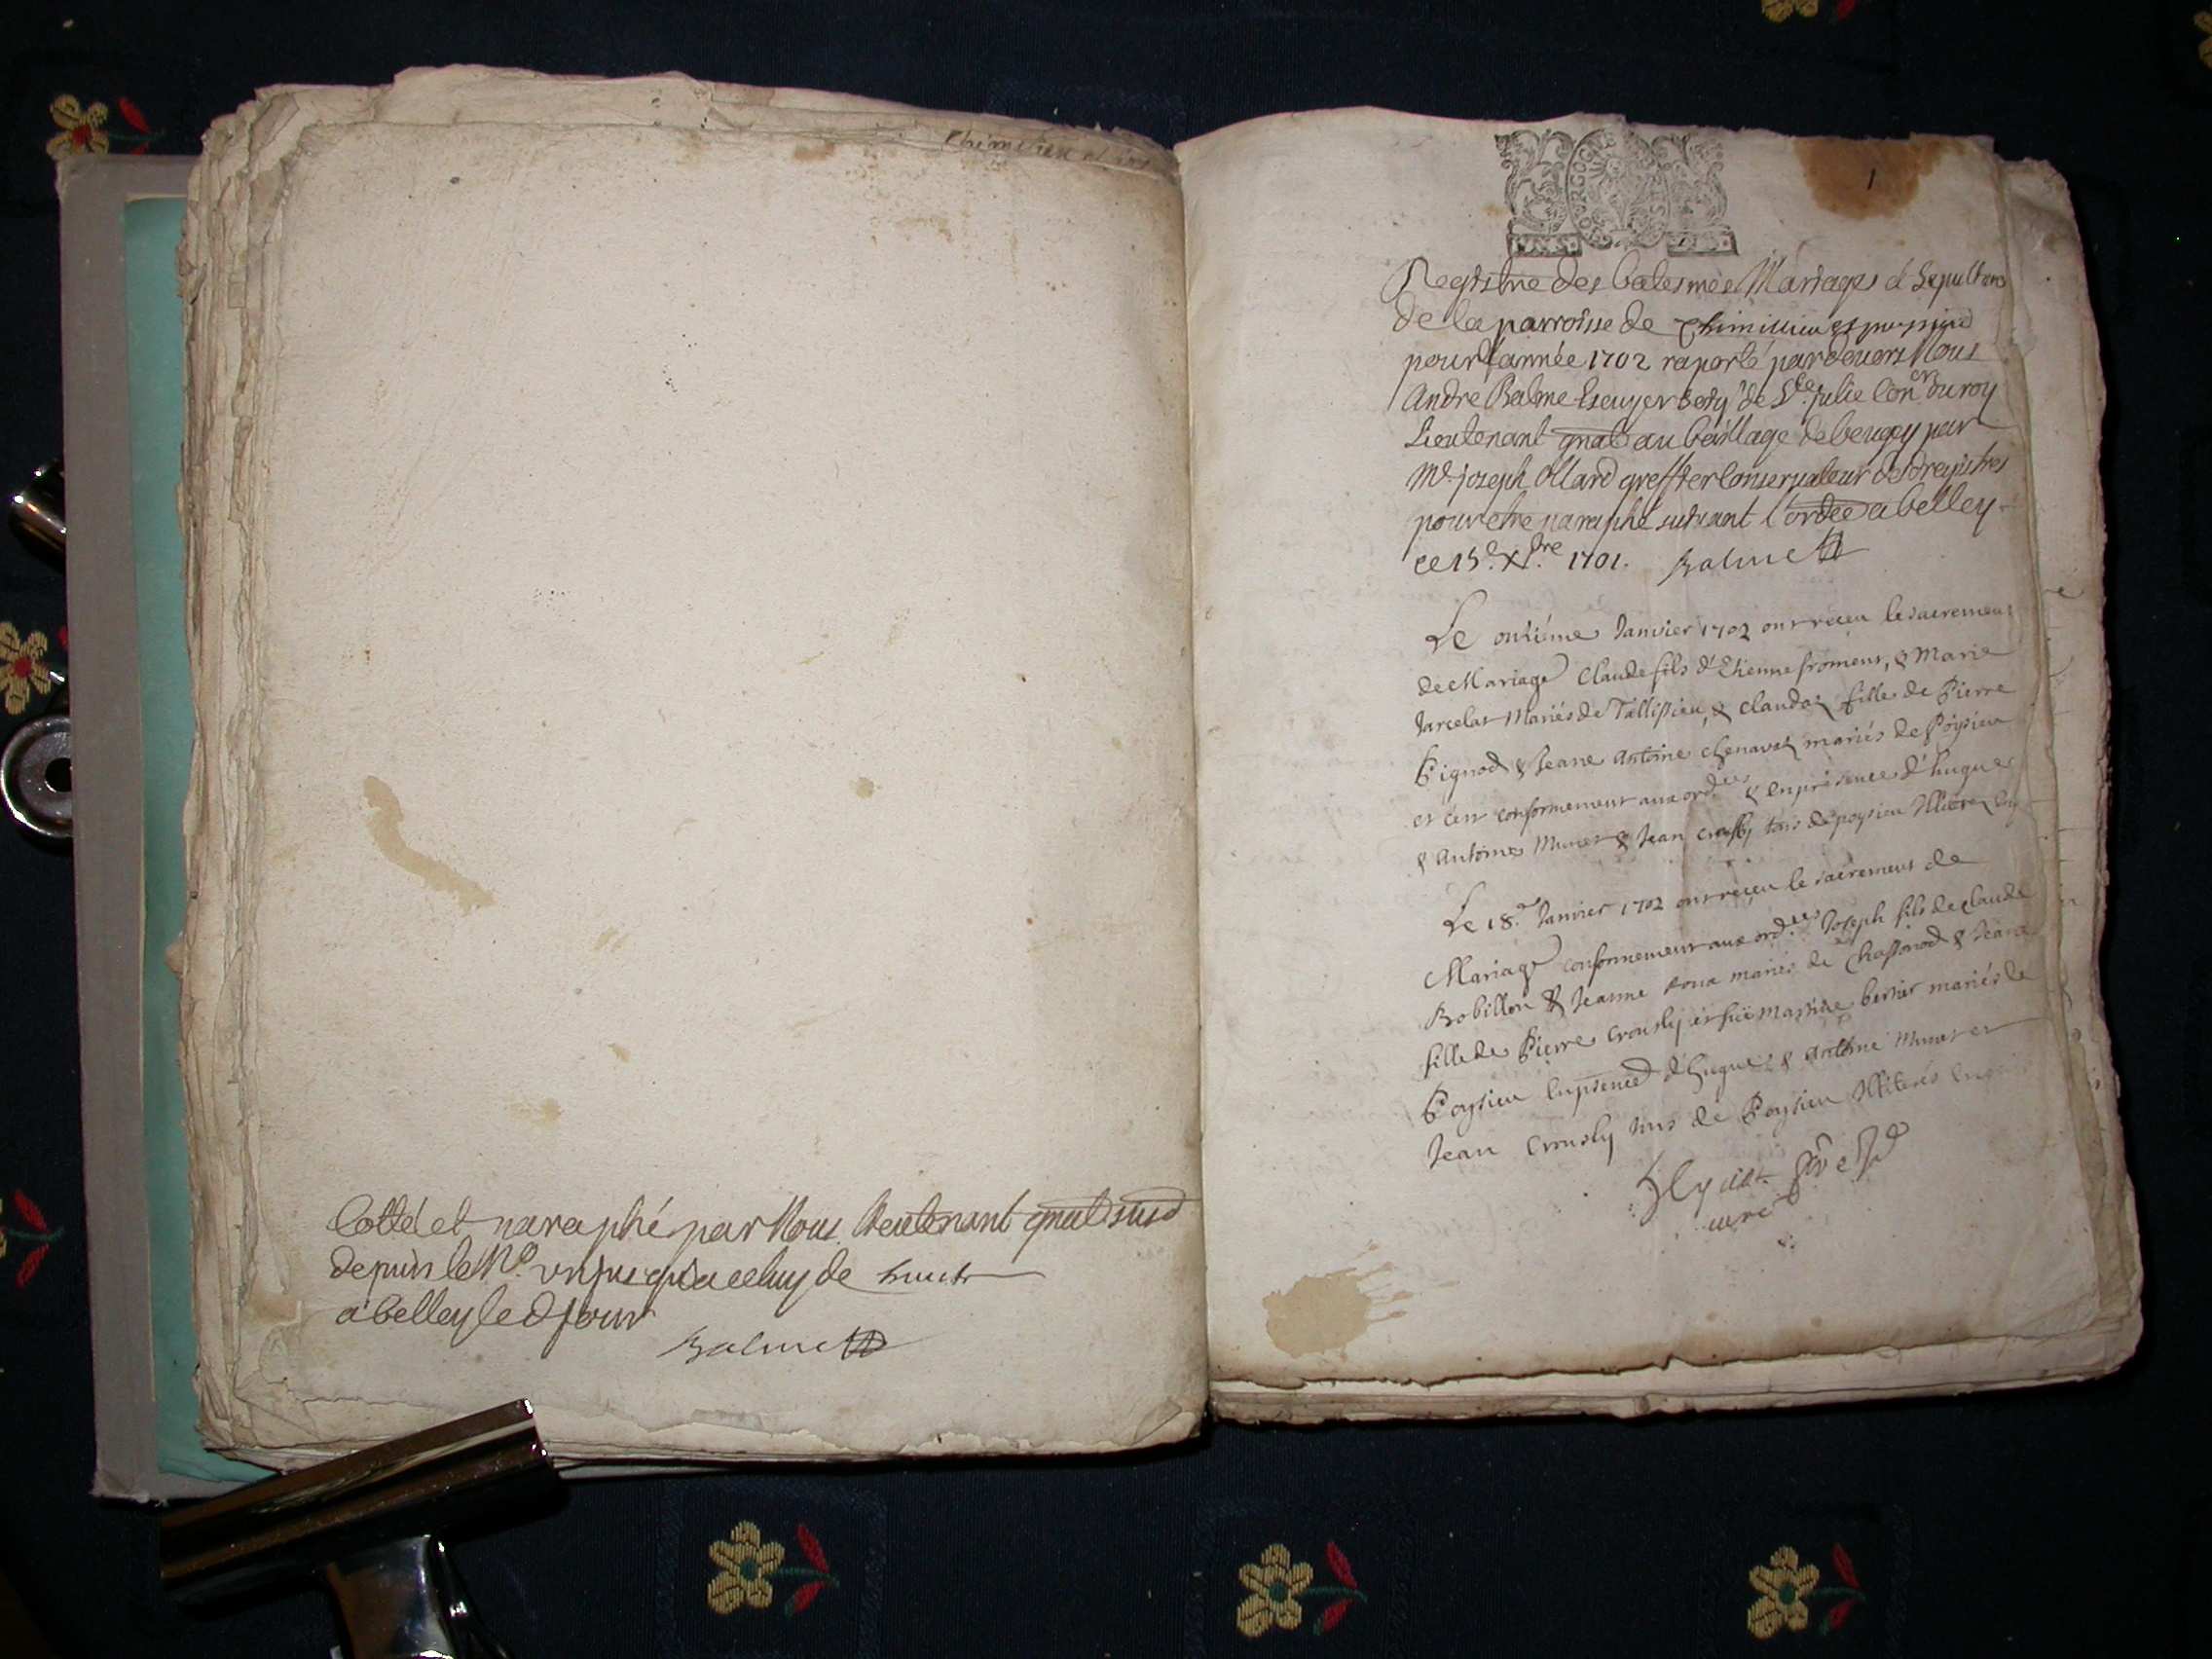 Cotté et paraphé par Nous Lieutenant gnâl susd
depuis le No. un jusqu'a celuy de huict
a belley led jour
Balme
BOURGOGNE
1
Registre des batesmes Mariages & Sepultures
de la parroisse de Chimillieu et poysieu
pour l'année 1702 raporté pardevers Nous
André Balme Escuyer seigr de Ste. julie Coner du roy
Lieutenant gnâl au baillage de beugey par
Me. joseph Ollard greffier Conservateur desd registres
pour etre paraphé suivant l'ordce a belley
ce 15e. Xbre 1701. Balme
Le onziéme Janvier 1702 ont receu le sacrement
de Mariage Claude fils d'Etienne froment, & Marie
Jarcelat Mariés de Tallissieu, & Claudaz fille de Pierre
Pignod & Jeane Antoine chenavaz mariés de Poysieu
et cest conformement aux ord.ces & en présence d'hugue
& Antoine Munet & Jean Crusly tous de poysieu Illiterez
Le 18.e Janvier 1702 ont reçeu le sacrement de
Mariage conformement aux ord.ces Joseph fils de Claude
Robillon & Jeanne roux mariés de Chassonod & Jeane
fille de Pierre Crously et fue Martine bernier mariés de
Poysieu en presence d'hugue & Antoine Munet et
Jean Crously tous de Poysieu Illiterés
curé